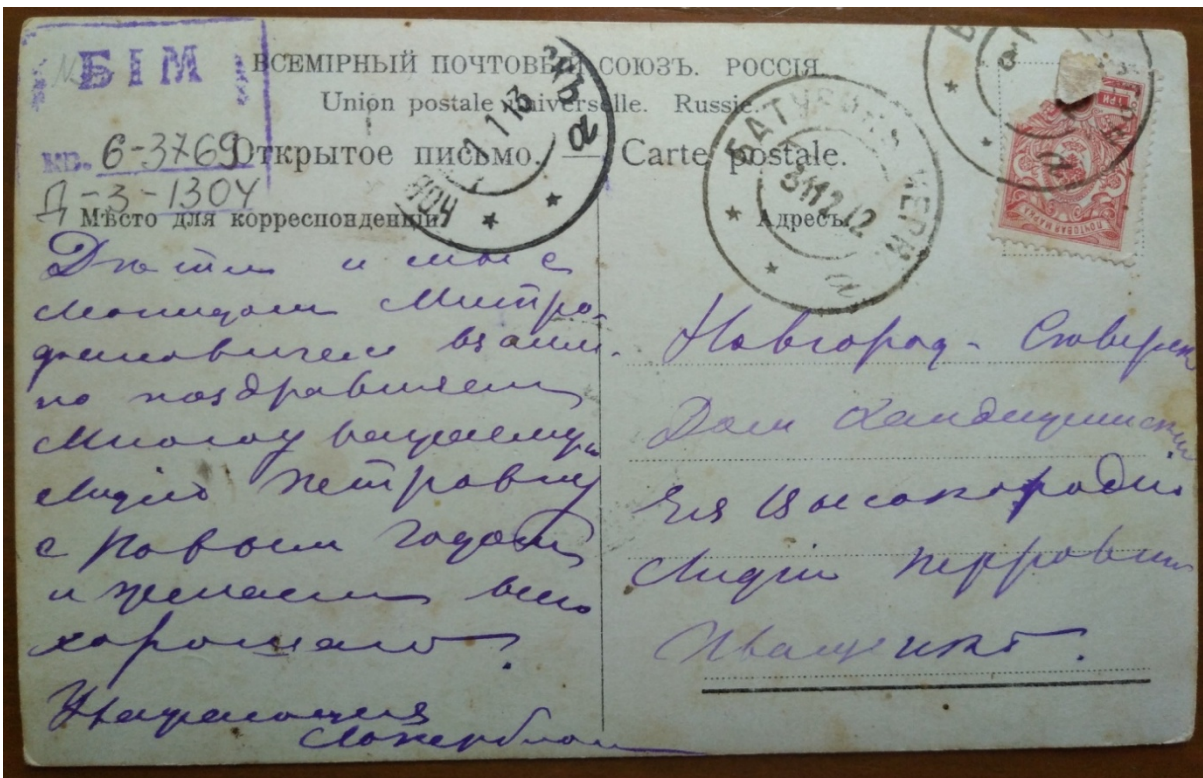 БІМ
ВСЕМІРНЫЙ ПОЧТОВЫЙ СОЮЗЪ. РОССІЯ.
Union postale universelle. Russie.
кв. 6-3769
Открытое письмо. — Carte postale.
Д-3-1304
Мѣсто для корреспонденціи
Адресъ
1 1 13
БАТУРИНЪ ЧЕРН
311212
ПОЧТОВАЯ МАРКА
Дѣти и мы с
Митро-
фановичем взаим-
но поздравляем
Многоуважаемую
Лидію Петровну
с Новым Годом
и желаем всего
хорошаго.
Новгород-Сѣверск
Дом
Ея Высокородію
Лидіи Петровнѣ
Иващенко.